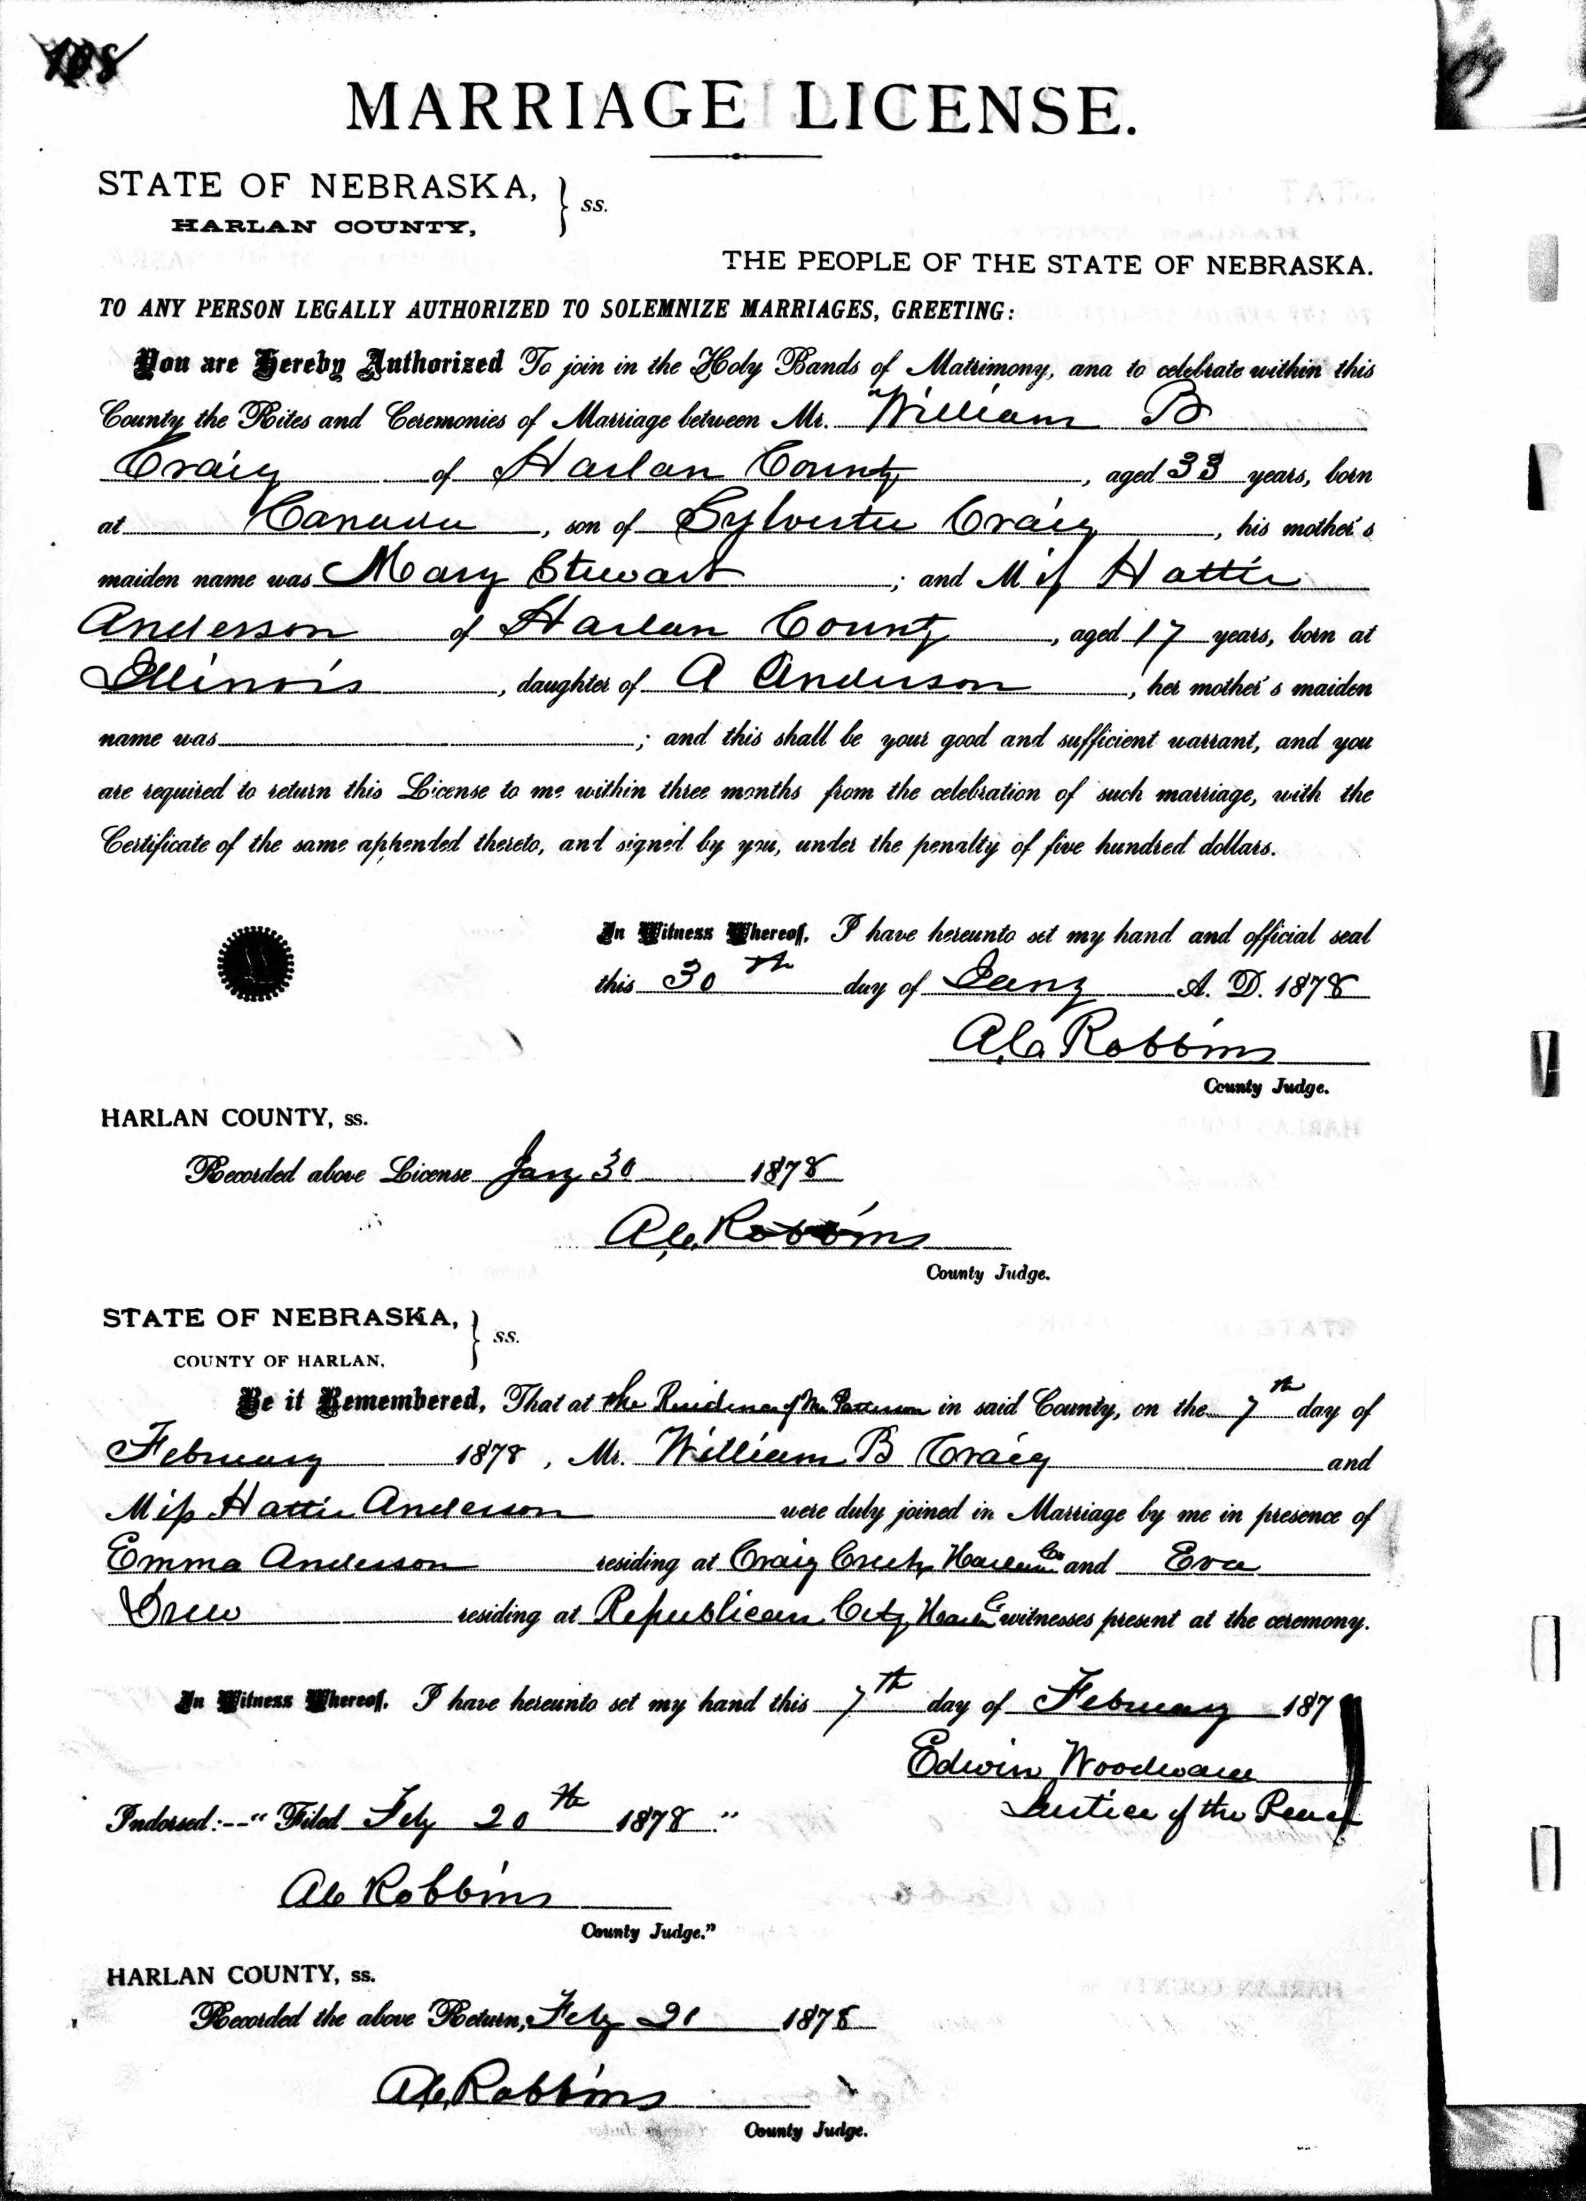 108
MARRIAGE LICENSE.
STATE OF NEBRASKA, } ss.
HARLAN COUNTY,
THE PEOPLE OF THE STATE OF NEBRASKA.
TO ANY PERSON LEGALLY AUTHORIZED TO SOLEMNIZE MARRIAGES, GREETING:
You are Hereby Authorized To join in the Holy Bands of Matrimony, and to celebrate within this
County the Rites and Ceremonies of Marriage between Mr. William B
Craig of Harlan County, aged 33 years, born
at Canada, son of Sylvester Craig, his mother's
maiden name was Mary Stewart; and Miss Hattie
Anderson of Harlan County, aged 17 years, born at
Illinois, daughter of A Anderson, her mother's maiden
name was ; and this shall be your good and sufficient warrant, and you
are required to return this License to me within three months from the celebration of such marriage, with the
Certificate of the same appended thereto, and signed by you, under the penalty of five hundred dollars.
In Witness Whereof, I have hereunto set my hand and official seal
this 30th day of Jany A. D. 1878
A.C. Robbins
County Judge.
HARLAN COUNTY, ss.
Recorded above License Jany 30 1878
A.C. Robbins
County Judge.
STATE OF NEBRASKA, } ss.
COUNTY OF HARLAN.
Be it Remembered, That at the Residence of Mr Patterson in said County, on the 7th day of
February 1878, Mr. William B Craig and
Miss Hattie Anderson were duly joined in Marriage by me in presence of
Emma Anderson residing at Craig Creek, Harlan Co and Eva
Drew residing at Republican City, Harlan Co witnesses present at the ceremony.
In Witness Whereof, I have hereunto set my hand this 7th day of February 187
Edwin Woodward
Justice of the Peace
Indorsed:--"Filed Feby 20th 1878."
A C Robbins
County Judge."
HARLAN COUNTY, ss.
Recorded the above Return, Feby 21 1878
A.C. Robbins
County Judge.